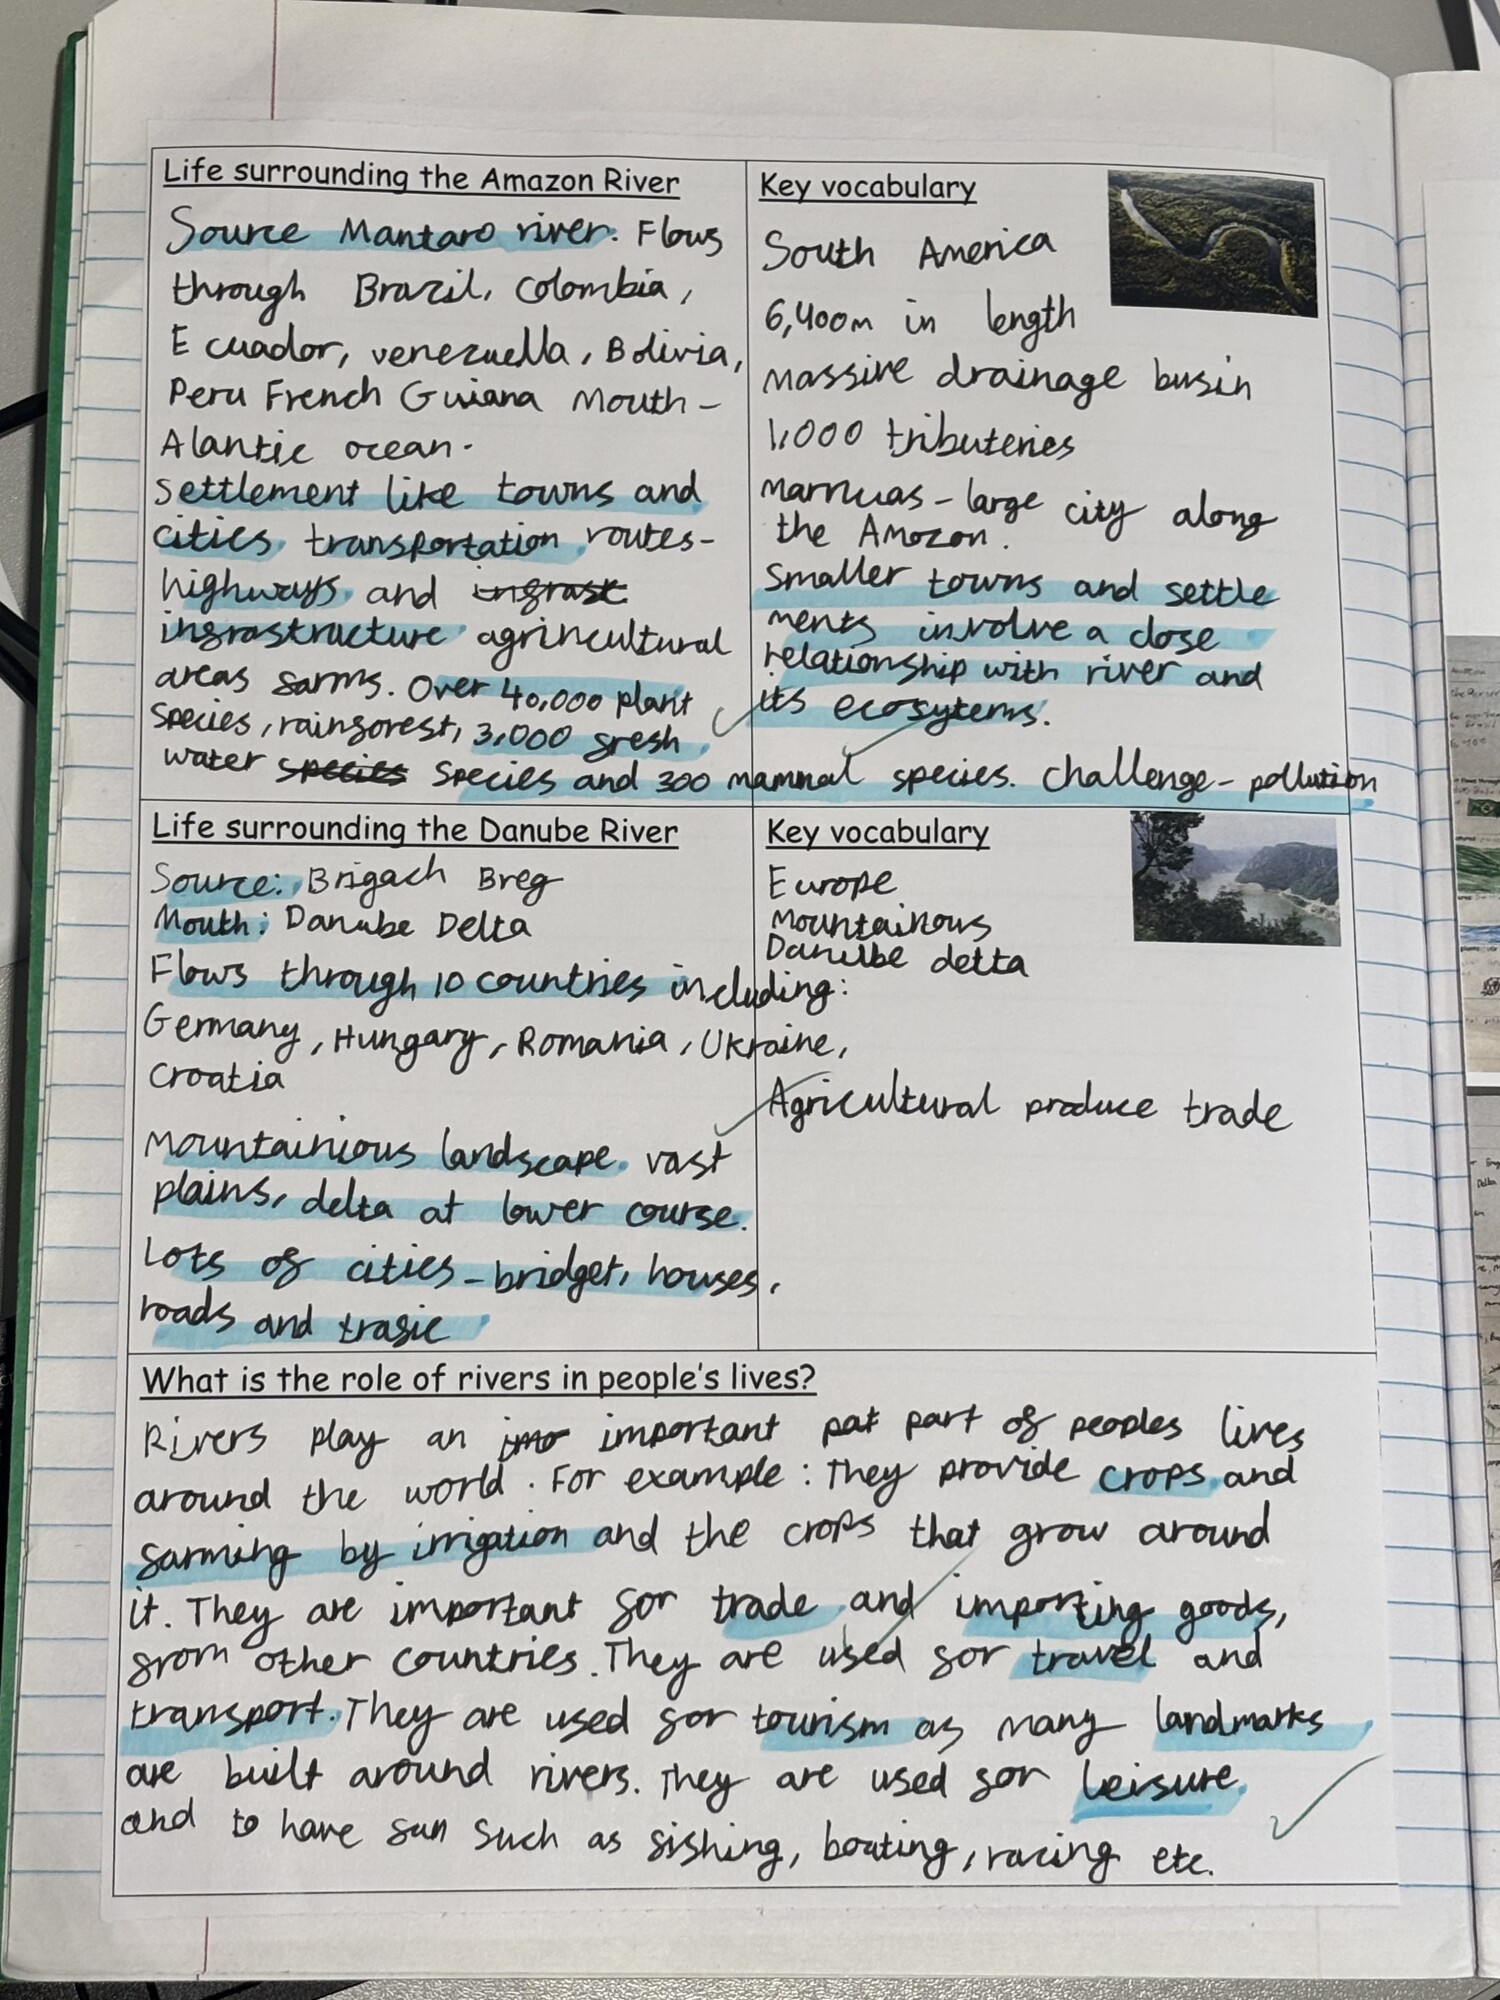 Life surrounding the Amazon River
Source Mantaro river. Flows
through Brazil, Colombia,
Ecuador, venezuella, Bolivia,
Peru French Guiana Mouth -
Alantic ocean.
Settlement like towns and
cities, transportation routes-
highways and ingrast
ingrastructure agrincultural
areas farms. Over 40,000 plant
species, rainforest, 3,000 fresh
water species species and 300 mammal species. Challenge - pollution
Key vocabulary
South America
6,400m in length
Massive drainage basin
1,000 tributeries
Marnuas - large city along
the Amazon.
Smaller towns and settle
ments involve a close
relationship with river and
its ecosytems.
Life surrounding the Danube River
Source: Brigach Breg
Mouth: Danube Delta
Flows through 10 countries including:
Germany, Hungary, Romania, Ukraine,
Croatia
Mountainious landscape. vast
plains, delta at lower course.
Lots of cities - bridget, houses,
roads and trafic
Key vocabulary
Europe
Mountainous
Danube delta
Agricultural produce trade
What is the role of rivers in people's lives?
Rivers play an imo important pat part of peoples lives
around the world. For example: They provide crops and
farming by irrigation and the crops that grow around
it. They are important for trade and importing goods,
from other countries. They are used for travel and
transport. They are used for tourism as many landmarks
are built around rivers. They are used for leisure.
and to have fun such as fishing, boating, racing etc.